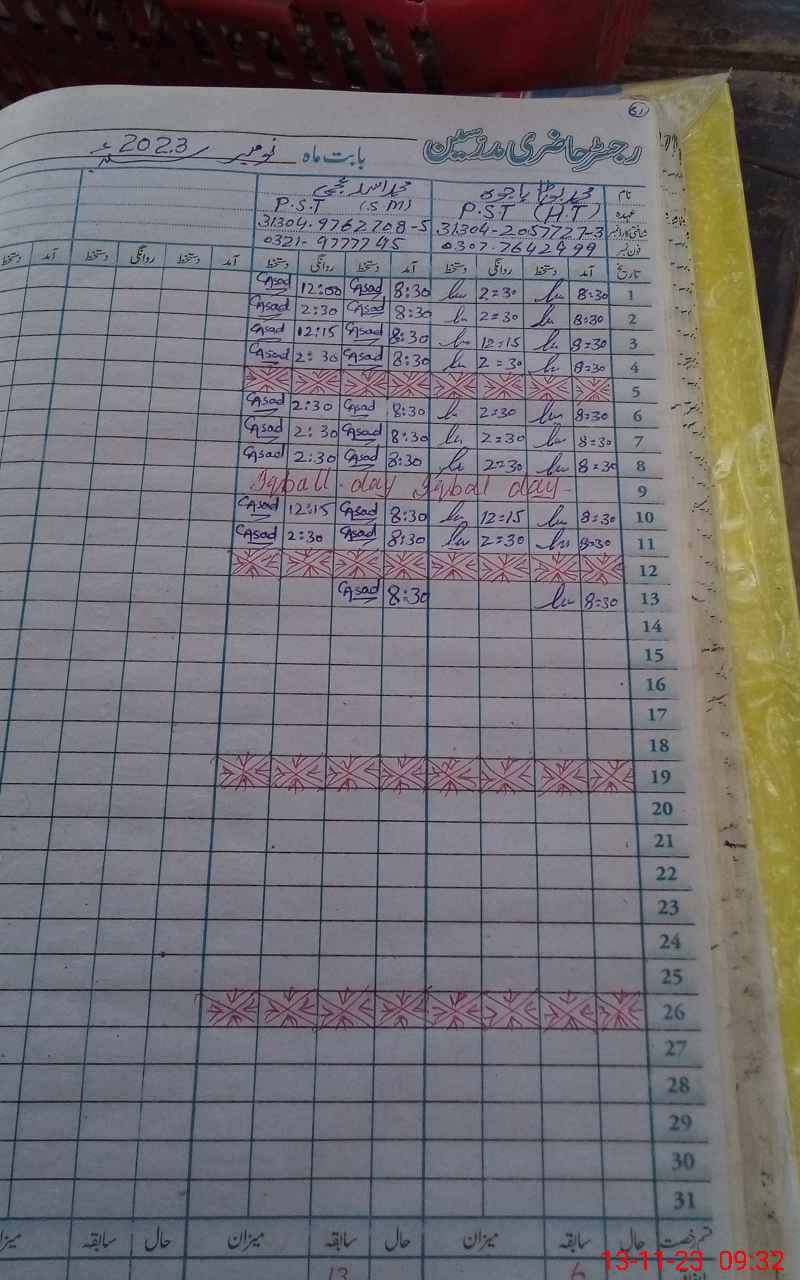 51
رجسٹر حاضری مدرسین بابت ماہ نومبر 2023ء
نام محمد
عہدہ P.S.T (H.T) P.S.T (S.M)
شناختی کارڈ نمبر 31304-2057727-3 31304-9762708-5
فون نمبر 0307-7642999 0321-9777745
تاریخ آمد دستخط روانگی دستخط آمد دستخط روانگی دستخط آمد دستخط روانگی دستخط آمد دستخط
1 8:30 2=30 8:30 Asad 12:00 Asad
2 8:30 2=30 8:30 Asad 2:30 Asad
3 8=30 12=15 8:30 Asad 12:15 Asad
4 8=30 2=30 8:30 Asad 2:30 Asad
5
6 8=30 2=30 8:30 Asad 2:30 Asad
7 8=30 2=30 8:30 Asad 2:30 Asad
8 8=30 2=30 8:30 Asad 2:30 Asad
9 Iqball day Iqbal day
10 8=30 12=15 8:30 Asad 12:15 Asad
11 8=30 2=30 8:30 Asad 2:30 Asad
12
13 8=30 8:30 Asad
14
15
16
17
18
19
20
21
22
23
24
25
26
27
28
29
30
31
قسم رخصت حال سابقہ میزان حال سابقہ میزان حال سابقہ میزان
6 13
13-11-23 09:32